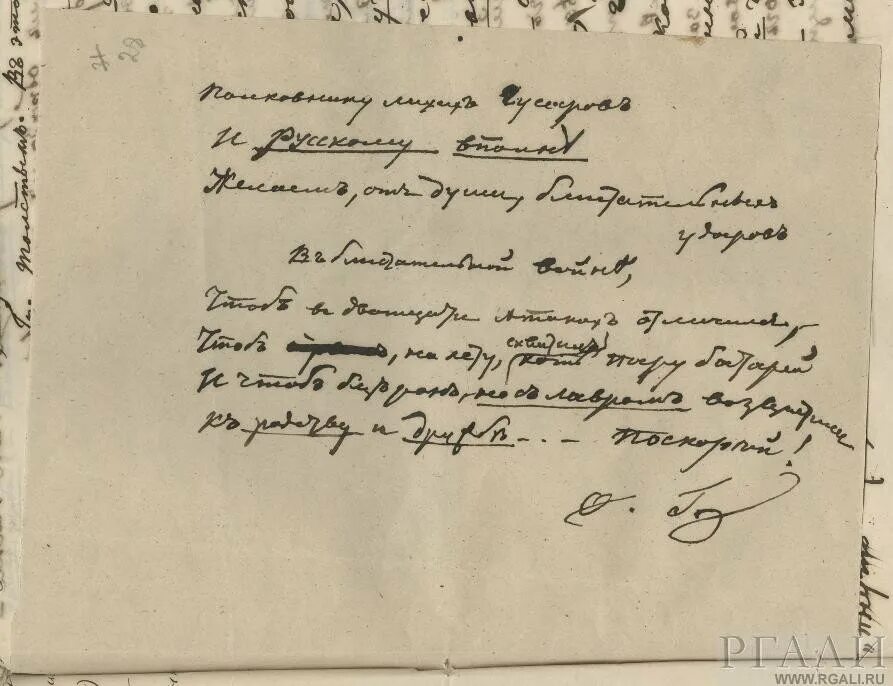 28
Полковнику лихихъ Гусаровъ
И Русскому вполнѣ
Желаемъ, отъ души, блистательныхъ
ударовъ
Въ блистательной войнѣ,
Чтобъ въ двенадцати атакахъ отличился,
Чтобъ на лету, схватилъ пару батарей
И чтобъ безъ ранъ, но съ лавромъ возвратился
Къ родству и дружбѣ... — Поскорѣй!
Ѳ. Г.
РГАЛИ
WWW.RGALI.RU